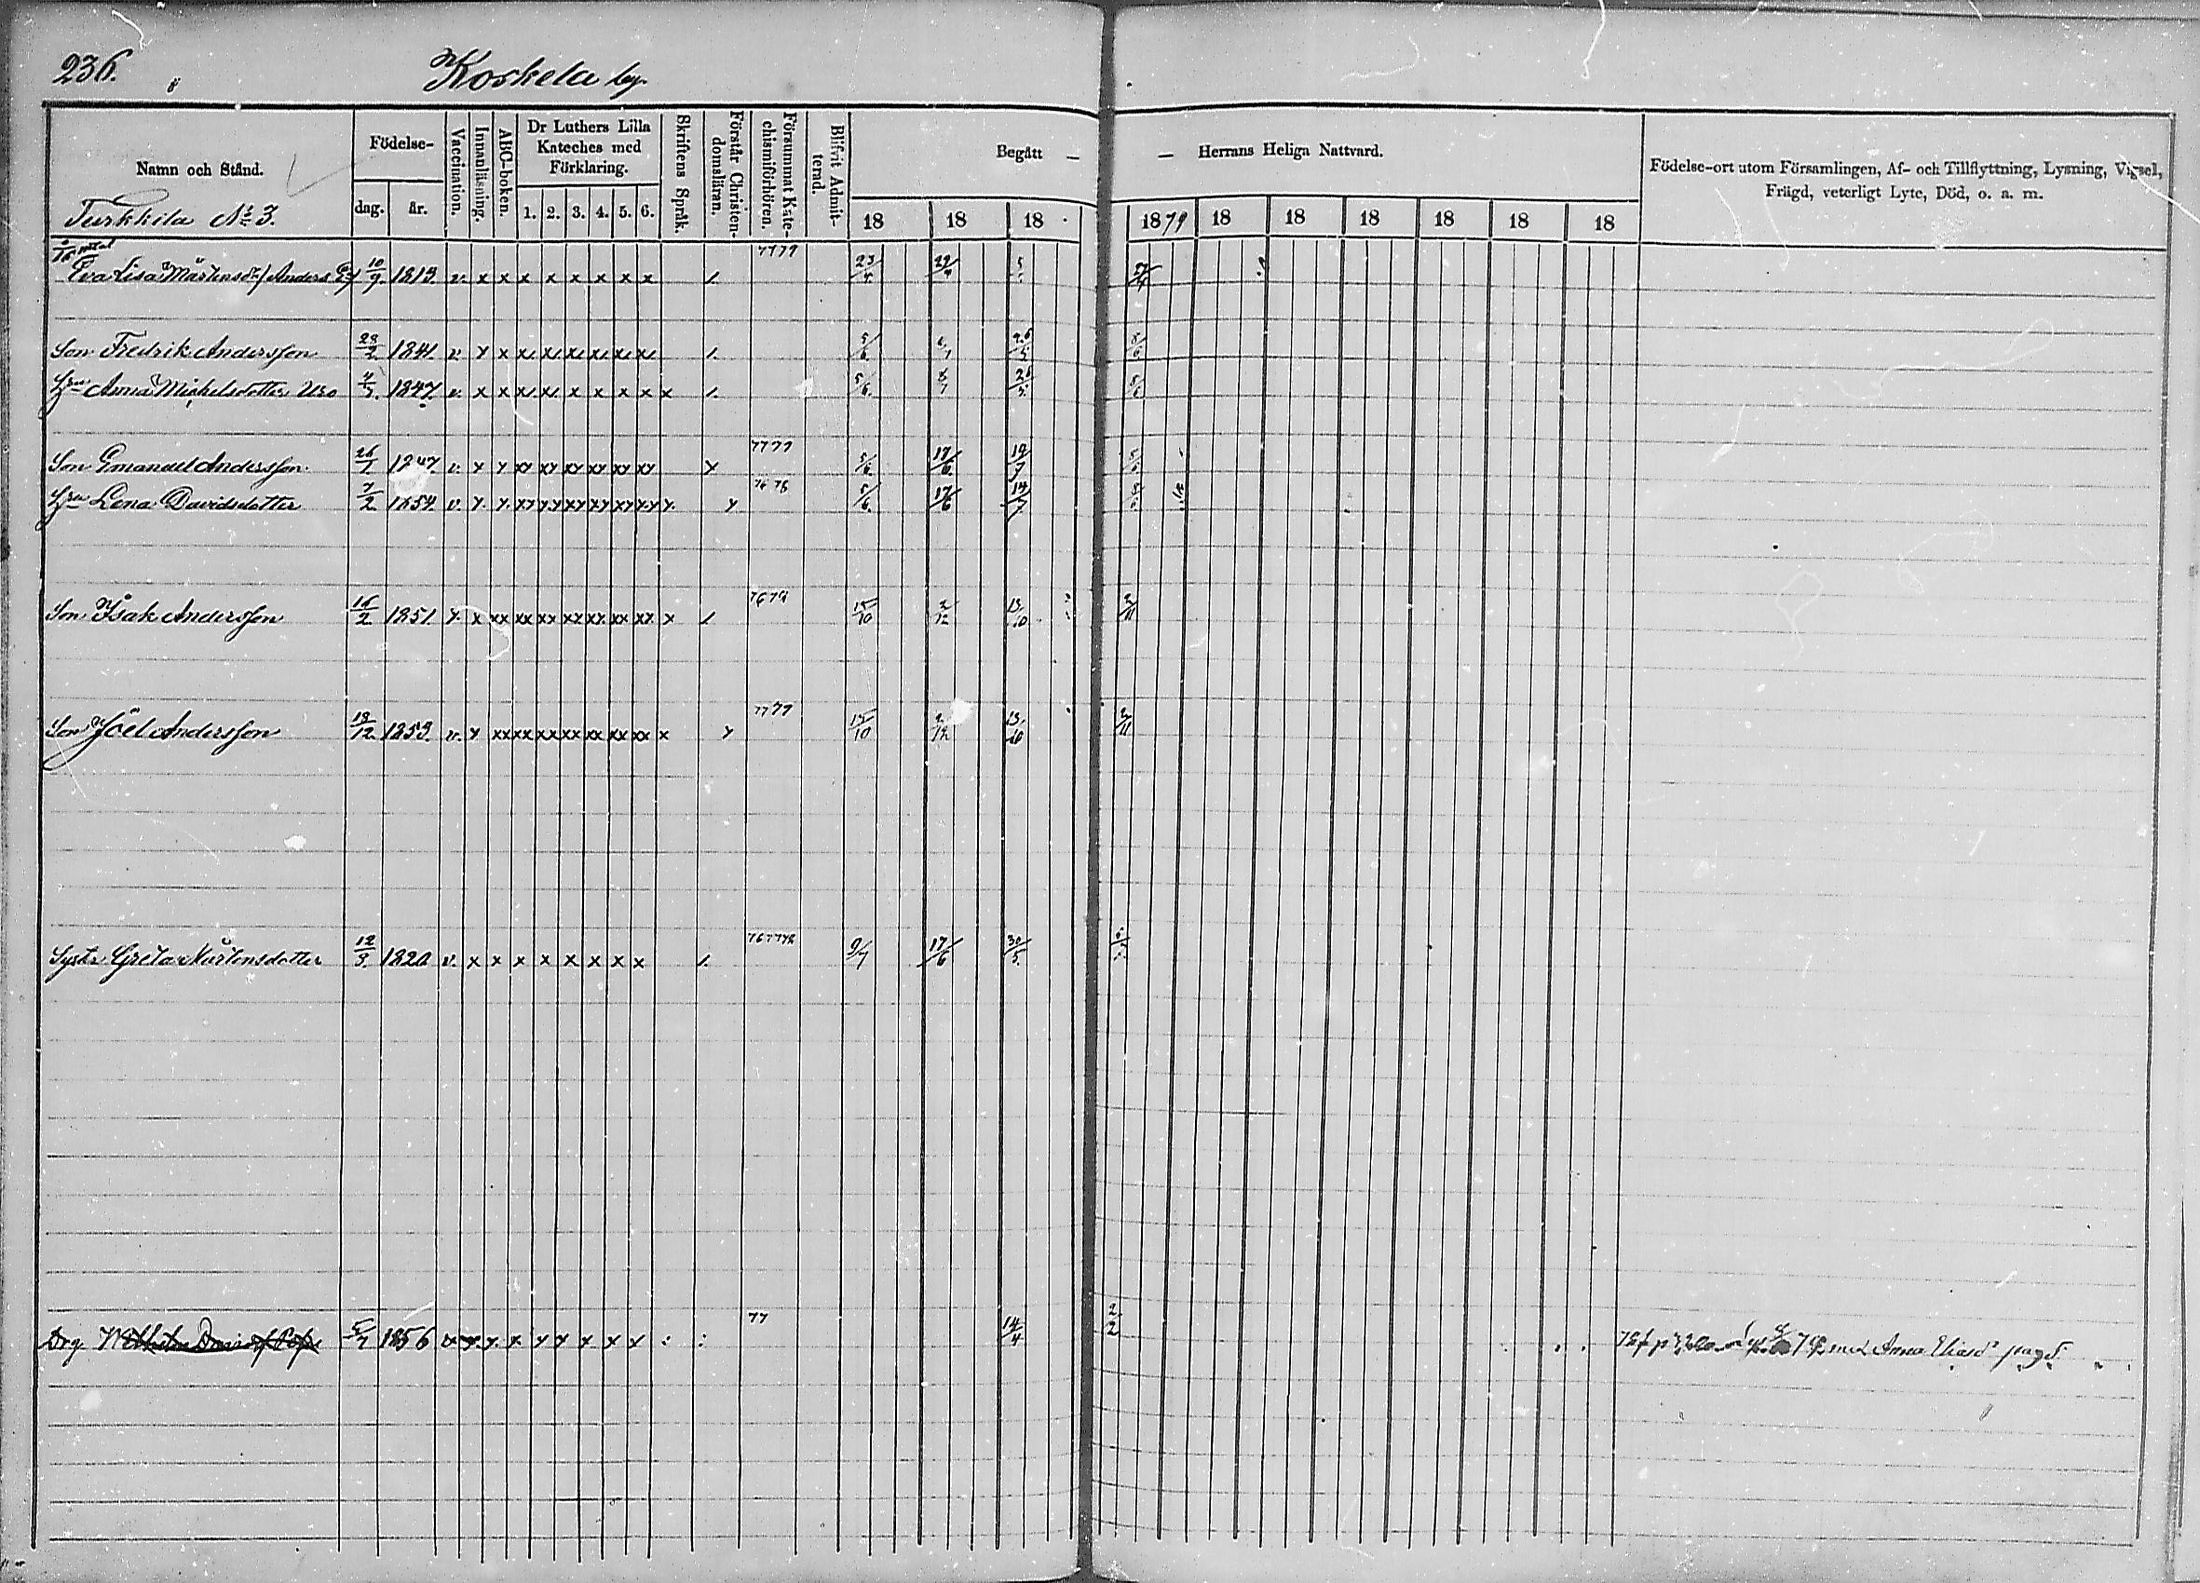 236. Koskela by.
Namn och Stånd. Födelse- dag. år. Vaccination. Innanläsning. ABC-boken. Dr Luthers Lilla Kateches med Förklaring. 1. 2. 3. 4. 5. 6. Skriftens Språk. Förstår Christendomsläran. Försummat Katechismiförhören. Blifvit Admitterad. Begått — — Herrans Heliga Nattvard. Födelse-ort utom Församlingen, Af- och Tillflyttning, Lysning, Vigsel, Frägd, veterligt Lyte, Död, o. a. m.
18 18 18 1879 18 18 18 18 18 18
Turkkila No 3.
Eva Lisa Mårtensdr / Anders 10/9. 1813. v. x x x x x x x x /. 7779 23/ 
Son Fredrik Andersson 23/2 1841. v. y x x x x x x x /. 5/6 26/5 8/6
Hru Anna Michelsdotter Uro 4/3. 1847. v. x x x x x x x x x /. 5/6. 26/5.
Son Emanuel Andersson 26/1 1847. v. y y xy xy xy xy xy xy y 7779 5/6. 17/6. 5/6.
Hru Lena Davidsdotter 7/2 1854. v. y. y. xy yy xy xy xy yy y. y 76 78 5/6. 17/6 14/7
Son Isak Andersson 16/2 1851. v. x xx xx xx xx xx xx xx x /. 15/10 2/12 13/10 2/11
Son Joël Andersson 13/12 1853. v. y xx xx xx xx xx xx xx x y 7779 15/10 2/12 13/10 2/11
Syst. Greta Mårtensdotter 12/3. 1820 v. x x x x x x x x /. 9/7 17/6 30/5.
Drg 5/7 1856 x y. y. x y y x x x 77 14/4 2/2 med Anna Eliasd pag